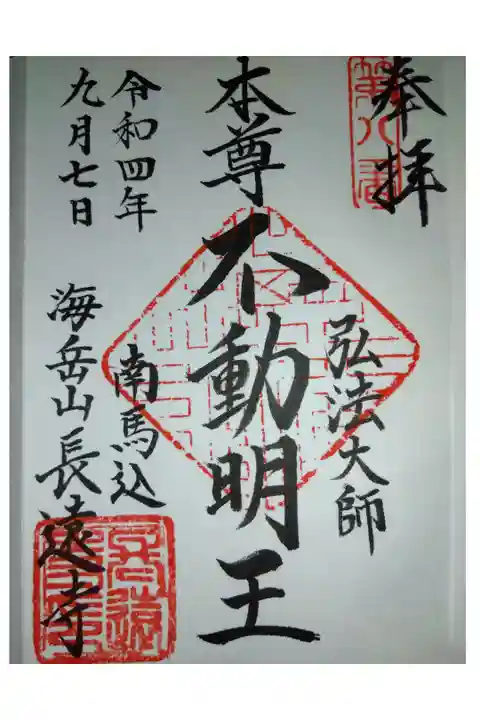 奉拝
第八番
弘法大師
本尊不動明王
南馬込
令和四年
九月七日
海岳山長遠寺